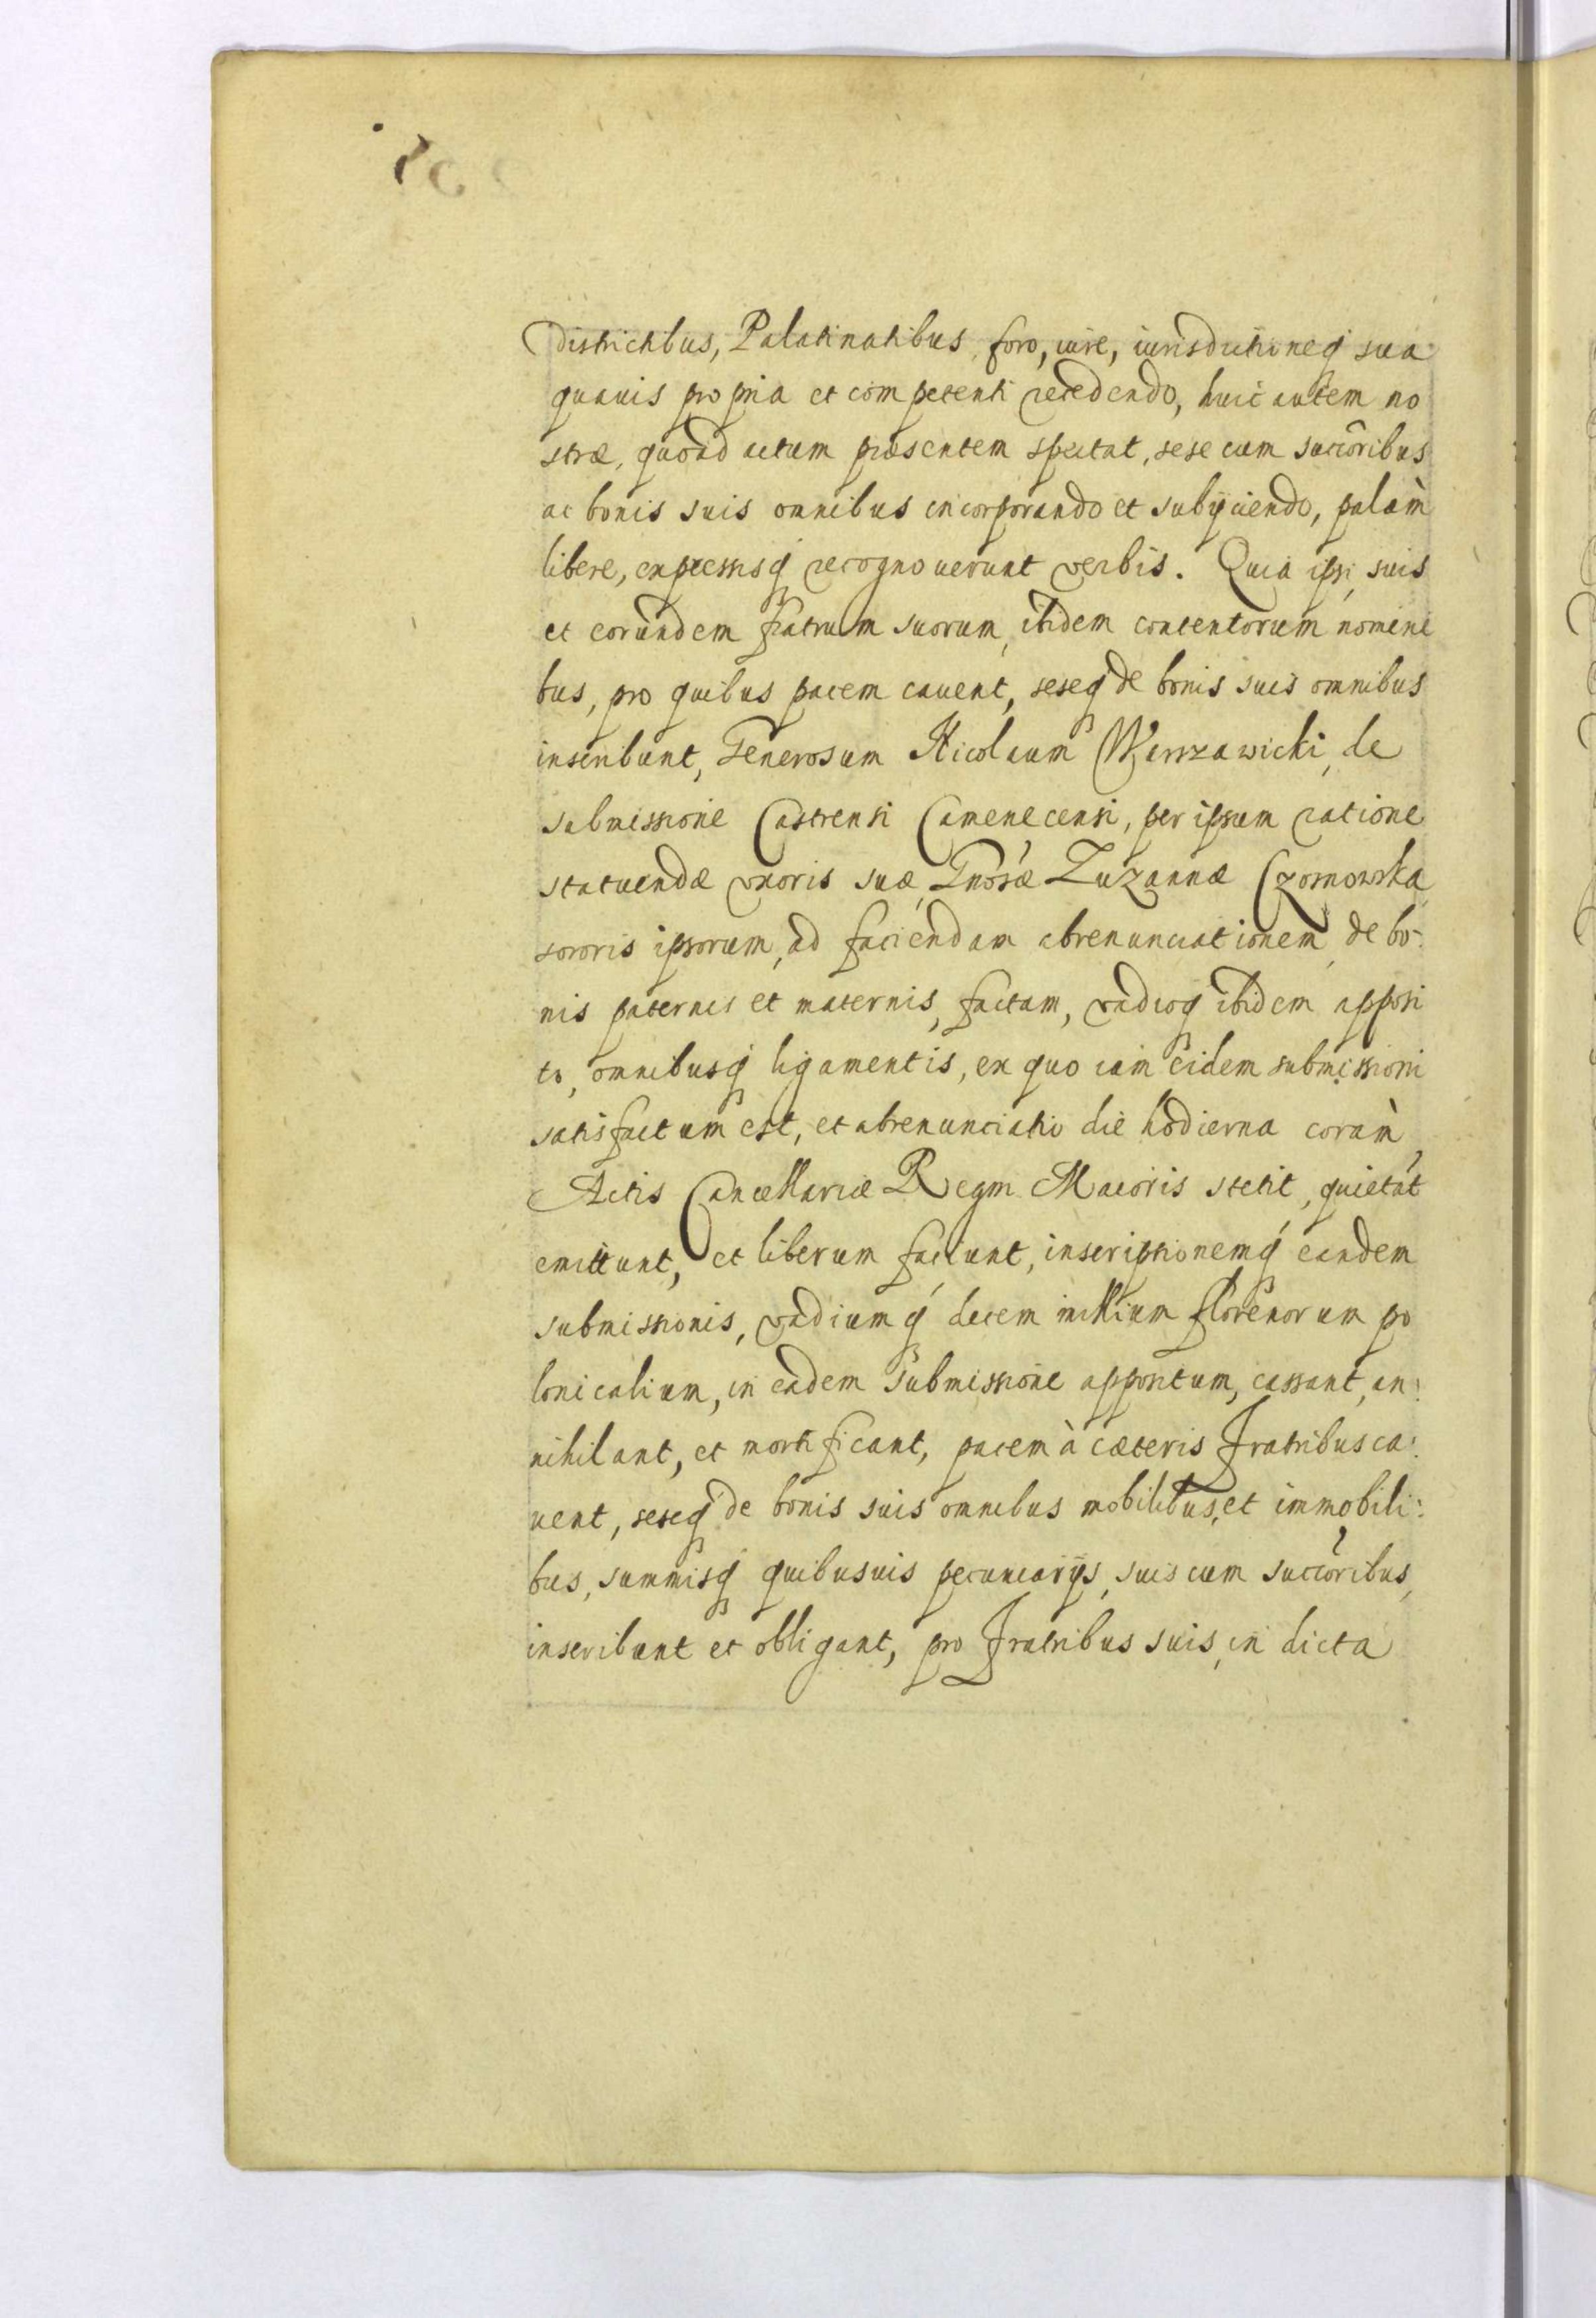 Districtibus, Palatinatibus, foro, iure, iurisdictioneq sua
quauis propria et competenti recedendo, huic autem no
stræ, quoad actum præsentem spectat, sese cum succôribus
ac bonis suis omnibus incorporando et subijciendo, palàm
libere, expressisq recognouerunt verbis. Quia ipsi suis
et eorundem fratrum suorum, ibidem contentorum nomini
bus, pro quibus pacem cauent, seseq de bonis suis omnibus
inscribunt, Generosum Nicolaum Warszawicki, de
submissione Castrensi Camenecensi, per ipsum ratione
statuendæ vxoris suæ, Gnosæ Zuzannæ Czornowska,
sororis ipsorum, ad faciendam abrenunciationem, de bo-
nis paternis et maternis, factam, vadioq ibidem apposi
to, omnibusq ligamentis, ex quo iam eidem submissioni
satisfactum est, et abrenunciatio die hodierna coràm
Actis Cancellariæ Regni Maioris stetit, quietát
emittunt, et liberum faciunt, inscriptionemq eandem
submissionis, vadiumq decem millium florenorum po
lonicalium, in eadem submissione appositum, cassant, an:
nihilant, et mortificant, pacem à cæteris Fratribus ca:
uent, seseq de bonis suis omnibus mobilibus, et immobili:
bus, summisq quibusuis pecuniarijs, suis cum succôribus,
inscribunt et obligant, pro Fratribus suis, in dicta